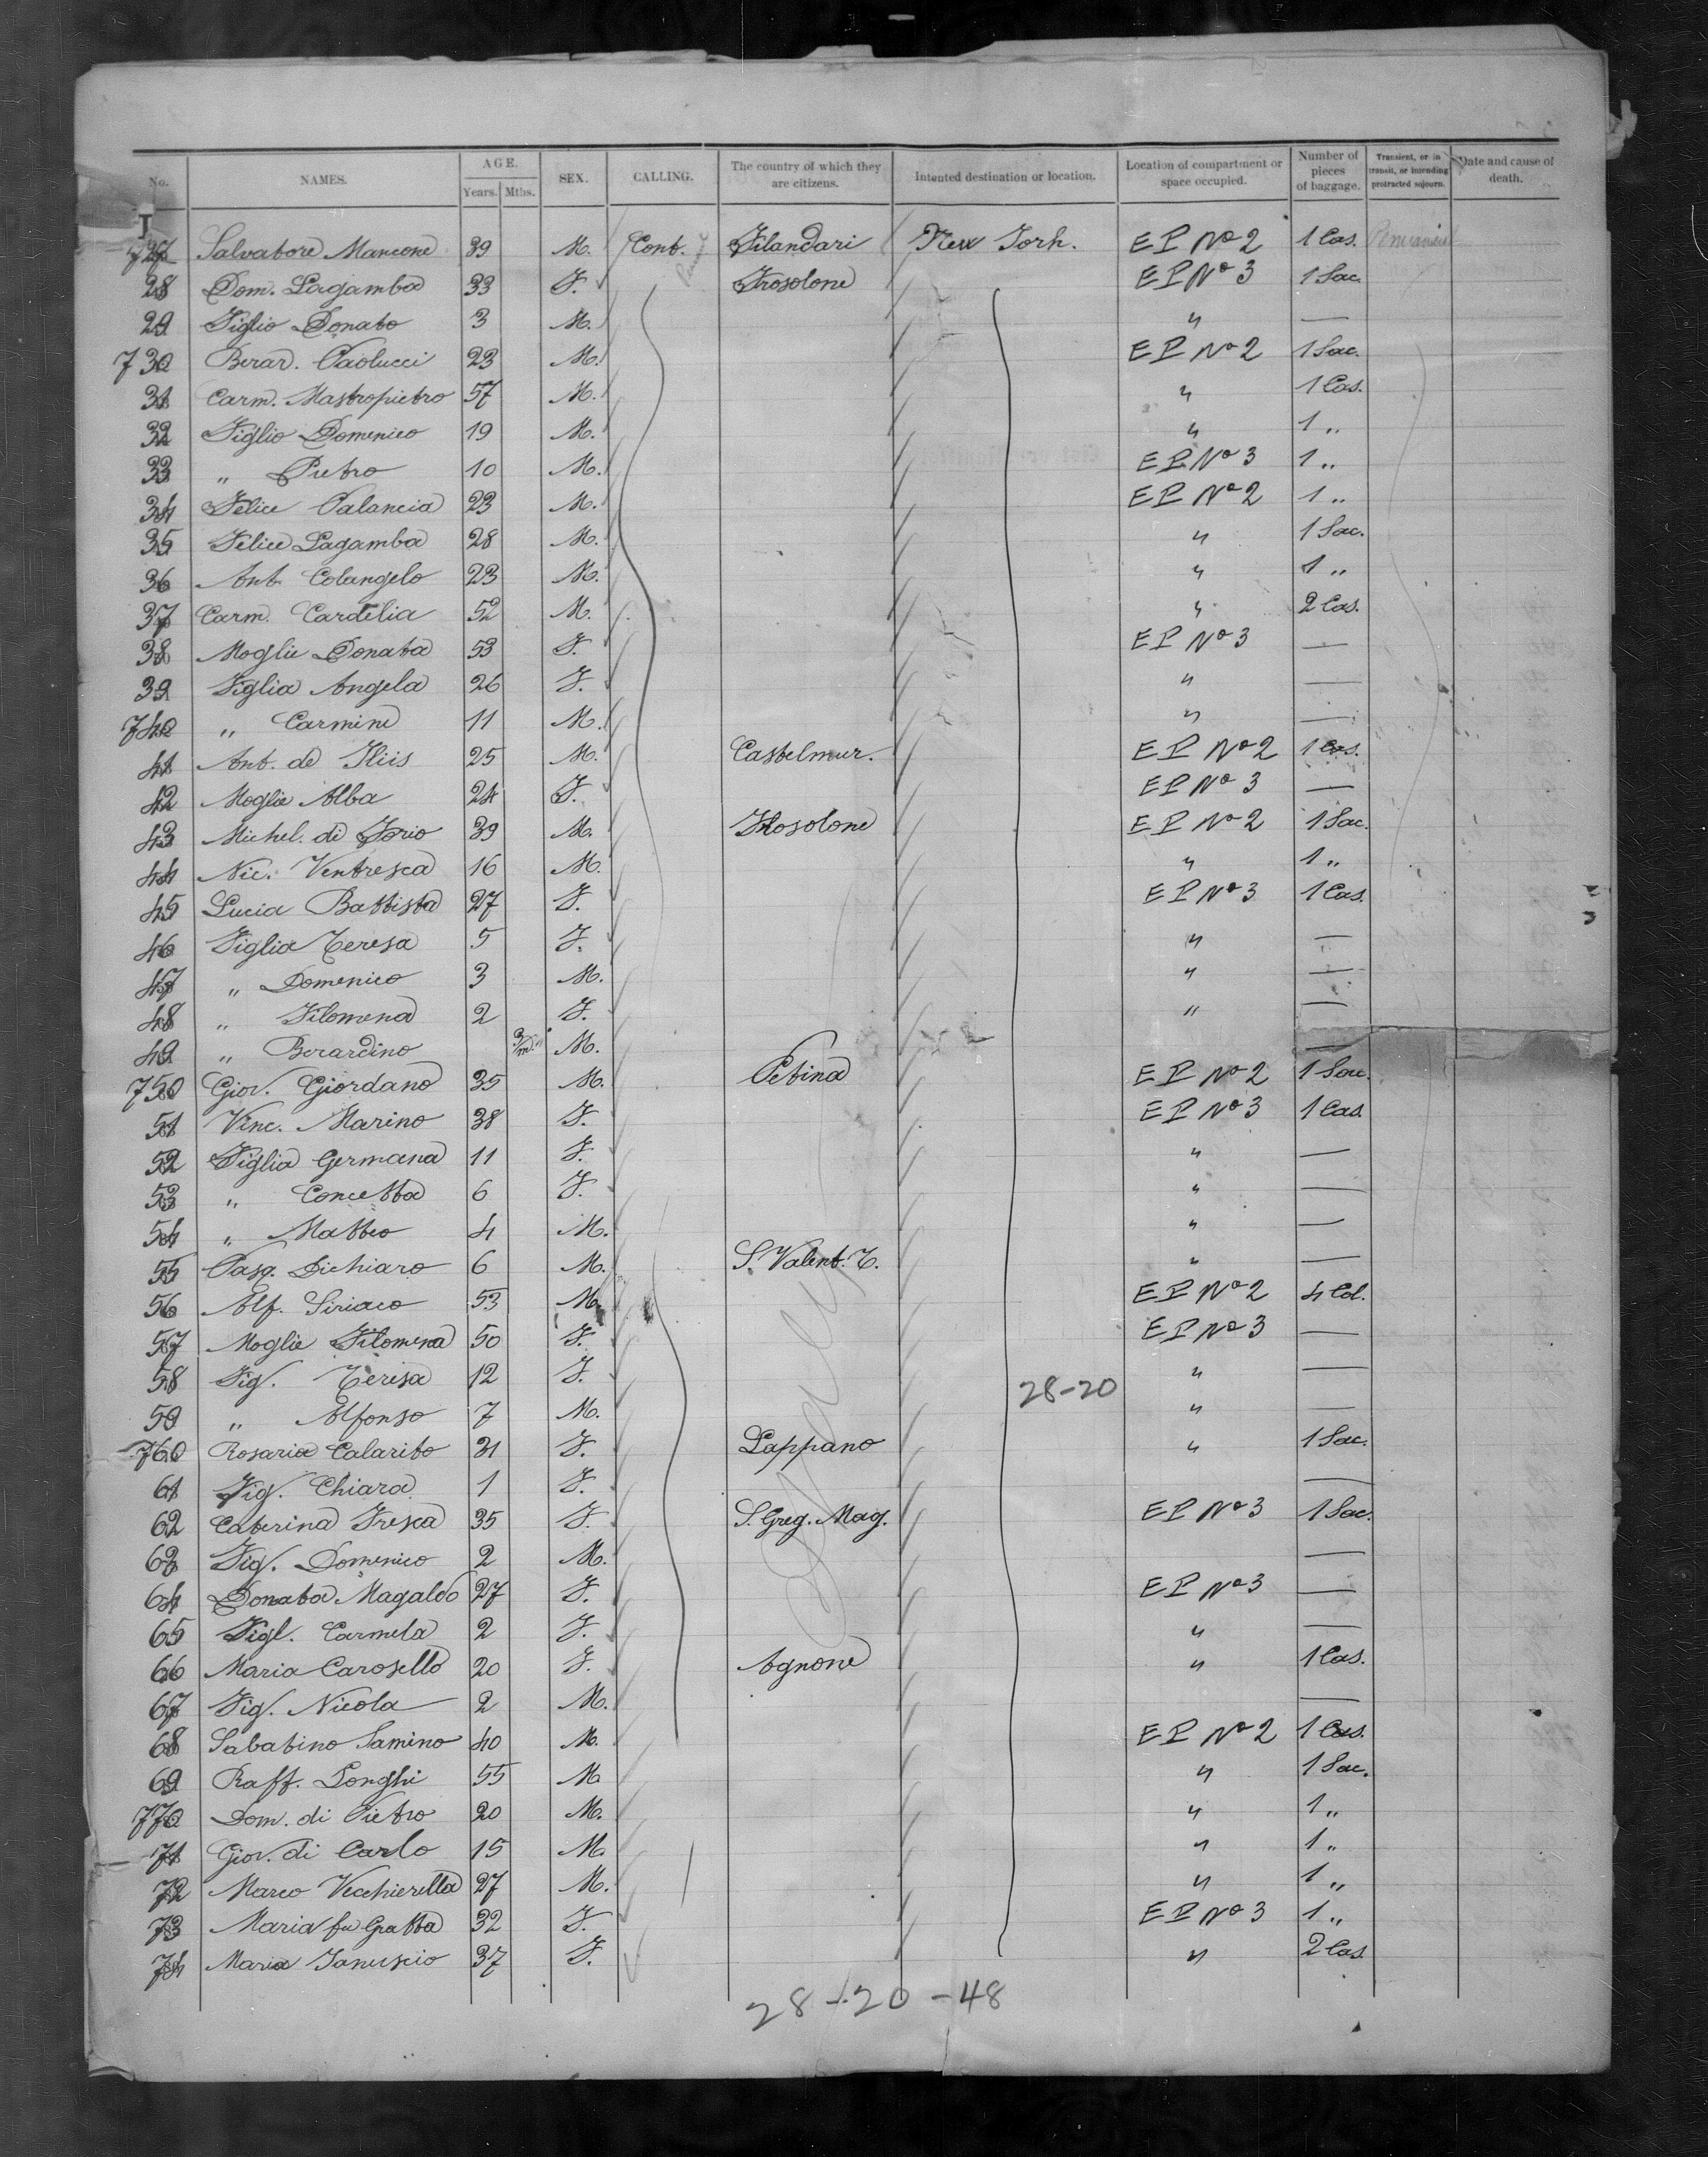 No. NAMES. AGE. Years. Mths. SEX. CALLING. The country of which they are citizens. Intented destination or location. Location of compartment or space occupied. Number of pieces of baggage. Transient, or in transit, or intending protracted sojourn. Date and cause of death.
I
727 Salvatore Mancone 39 M. Cont. Filandari New Jorh. EP No 2 1 Cas.
28 Dom. Lagamba 33 F. Frosolone EP No 3 1 Sac.
29 Figlio Donato 3 M. " —
730 Berar. Paolucci 23 M. EP No 2 1 Sac.
31 Carm. Mastropietro 57 M. " 1 Cas.
32 Figlio Domenico 19 M. " 1 "
33 " Pietro 10 M. EP No 3 1 "
34 Felice Palancia 23 M. EP No 2 1 "
35 Felice Lagamba 28 M. " 1 Sac.
36 Ant. Colangelo 23 M. " 1 "
37 Carm. Cardelia 52 M. " 2 Cas.
38 Moglie Donata 53 F. EP No 3 —
39 Figlia Angela 26 F. " —
740 " Carmine 11 M. " —
41 Ant. de Iliis 25 M. Castelmur. EP No 2 1 Cas.
42 Moglie Alba 24 F. EP No 3 —
43 Michel. di Iorio 39 M. Frosolone EP No 2 1 Sac.
44 Nic. Ventresca 16 M. " 1 "
45 Lucia Battista 27 F. EP No 3 1 Cas.
46 Figlia Teresa 5 F. " —
47 " Domenico 3 M. " —
48 " Filomena 2 F. " —
49 " Berardino 3/m. M. —
750 Giov. Giordano 35 M. Petina EP No 2 1 Sac.
51 Vinc. Marino 38 F. EP No 3 1 Cas.
52 Figlia Germana 11 F. " —
53 " Concetta 6 F. " —
54 " Matteo 4 M. " —
55 Pasq. Dichiaro 6 M. S. Valent. T. " —
56 Alf. Siriaco 53 M. EP No 2 4 Col.
57 Moglie Filomena 50 F. EP No 3 —
58 Fig. Teresa 12 F. " —
28-20
59 " Alfonso 7 M. " —
760 Rosaria Calarito 31 F. Lappano " 1 Sac.
61 Fig. Chiara 1 F. —
62 Caterina Fresca 35 F. S. Greg. Mag. EP No 3 1 Sac.
63 Fig. Domenico 2 M. —
64 Donata Magaldo 27 F. EP No 3 —
65 Figl. Carmela 2 F. " —
66 Maria Carosello 20 F. Agnone " 1 Cas.
67 Fig. Nicola 2 M. —
68 Sabatino Samino 40 M. EP No 2 1 Cas.
69 Raff. Longhi 55 M. " 1 Sac.
770 Dom. di Pietro 20 M. " 1 "
71 Giov. di Carlo 15 M. " 1 "
72 Marco Vecchierella 27 M. " 1 "
73 Maria fu Gratta 32 F. EP No 3 1 "
74 Maria Januscio 37 F. " 2 Cas.
28-20-48